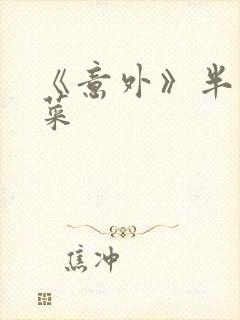 《意外》半
菜
焦冲